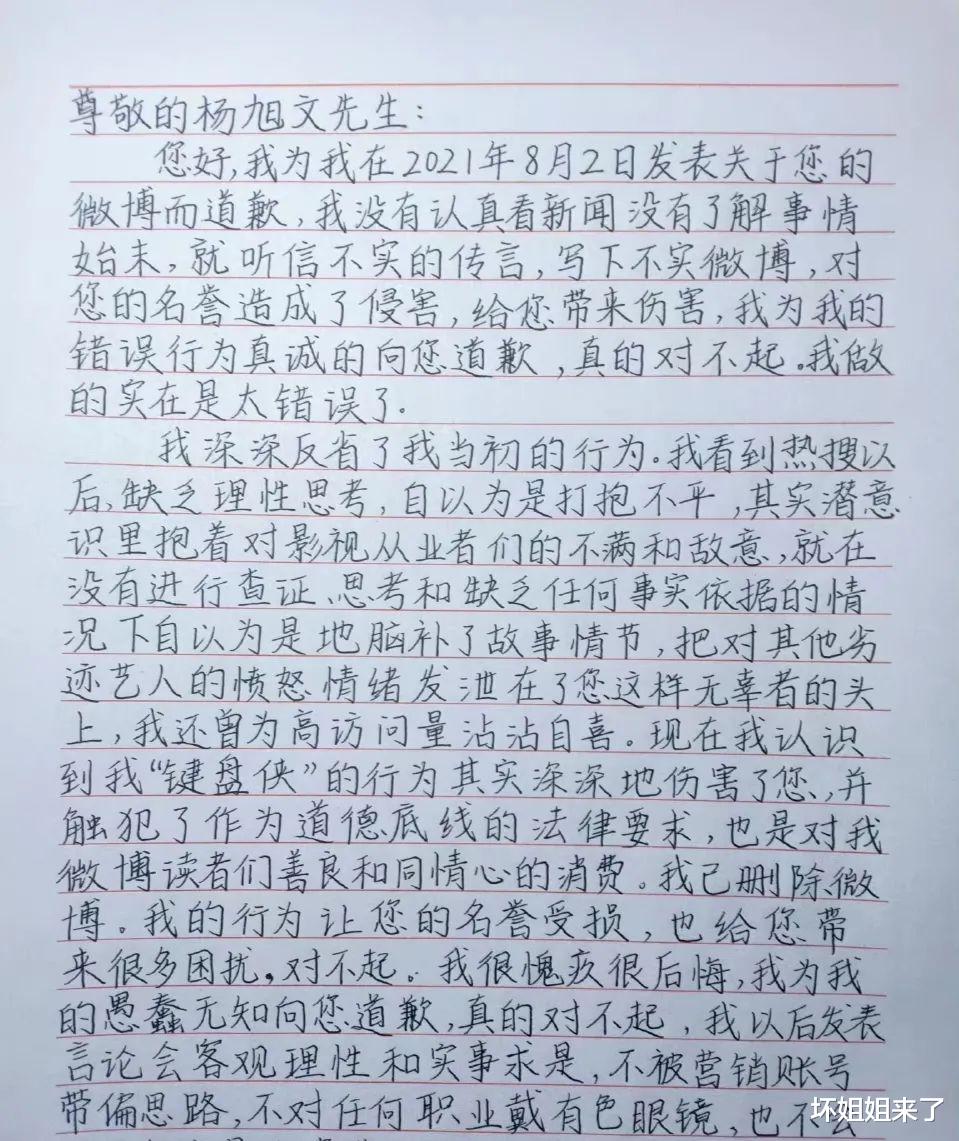 尊敬的杨旭文先生:
您好,我为我在2021年8月2日发表关于您的
微博而道歉,我没有认真看新闻没有了解事情
始末,就听信不实的传言,写下不实微博,对
您的名誉造成了侵害,给您带来伤害,我为我的
错误行为真诚的向您道歉,真的对不起。我做
的实在是太错误了.
我深深反省了我当初的行为。我看到热搜以
后,缺乏理性思考,自以为是打抱不平,其实潜意
识里抱着对影视从业者们的不满和敌意,就在
没有进行查证、思考和缺乏任何事实依据的情
况下自以为是地脑补了故事情节,把对其他劣
迹艺人的愤怒情绪发泄在了您这样无辜者的头
上,我还曾为高访问量沾沾自喜。现在我认识
到我“键盘侠”的行为其实深深地伤害了您,并
触犯了作为道德底线的法律要求,也是对我
微博读者们善良和同情心的消费。我已删除微
博。我的行为让您的名誉受损,也给您带
来很多困扰,对不起。我很愧疚很后悔,我为我
的愚蠢无知向您道歉,真的对不起,我以后发表
言论会客观理性和实事求是,不被营销账号
带偏思路,不对任何职业戴有色眼镜,也不会
坏姐姐来了